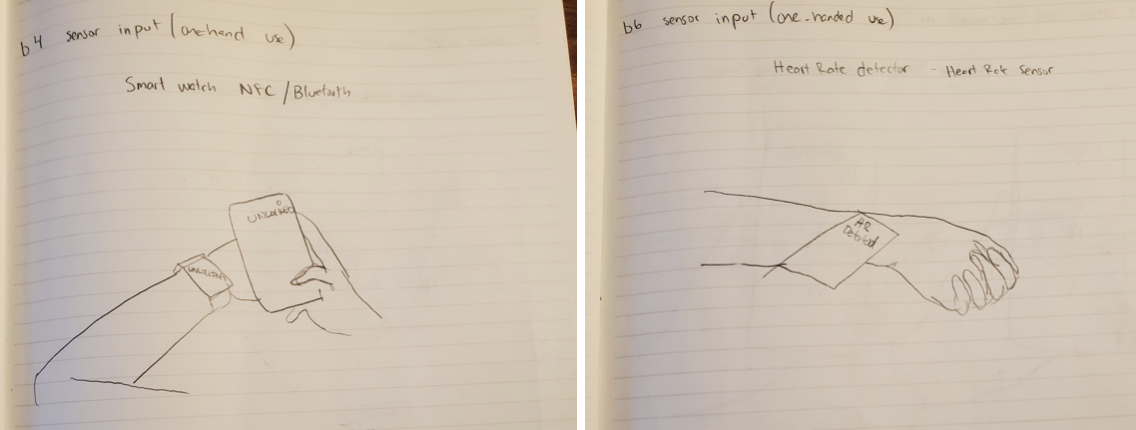 b4 sensor input (onehand use)
Smart watch NFC / Bluetooth
UNLOCKED
b6 sensor input (one-handed use)
Heart Rate detector - Heart Rate Sensor
HR